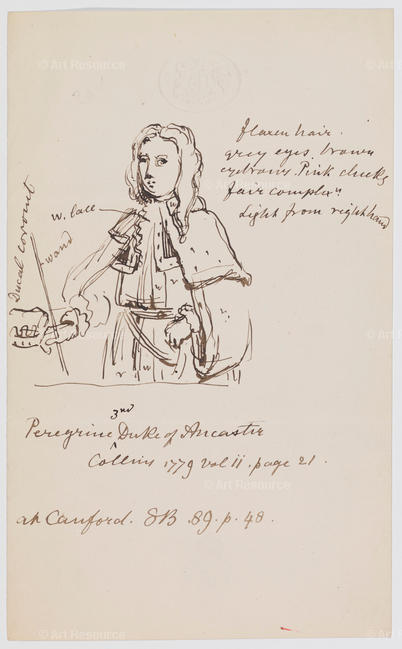 flaxen hair.
grey eyes. brown
eyebrows. Pink cheeks
fair complexn
Light from right hand
w. lace
Ducal coronet
wand
w
v
w
r
r
v
w
3rd
Peregrine Duke of Ancaster
Collins 1779 vol II. page 21.
at Canford. SB 89. p. 48.
© Art Resource
© Art Resource
© Art Resource
© Art Resource
© Art Resource
© Art Resource
© Art Resource